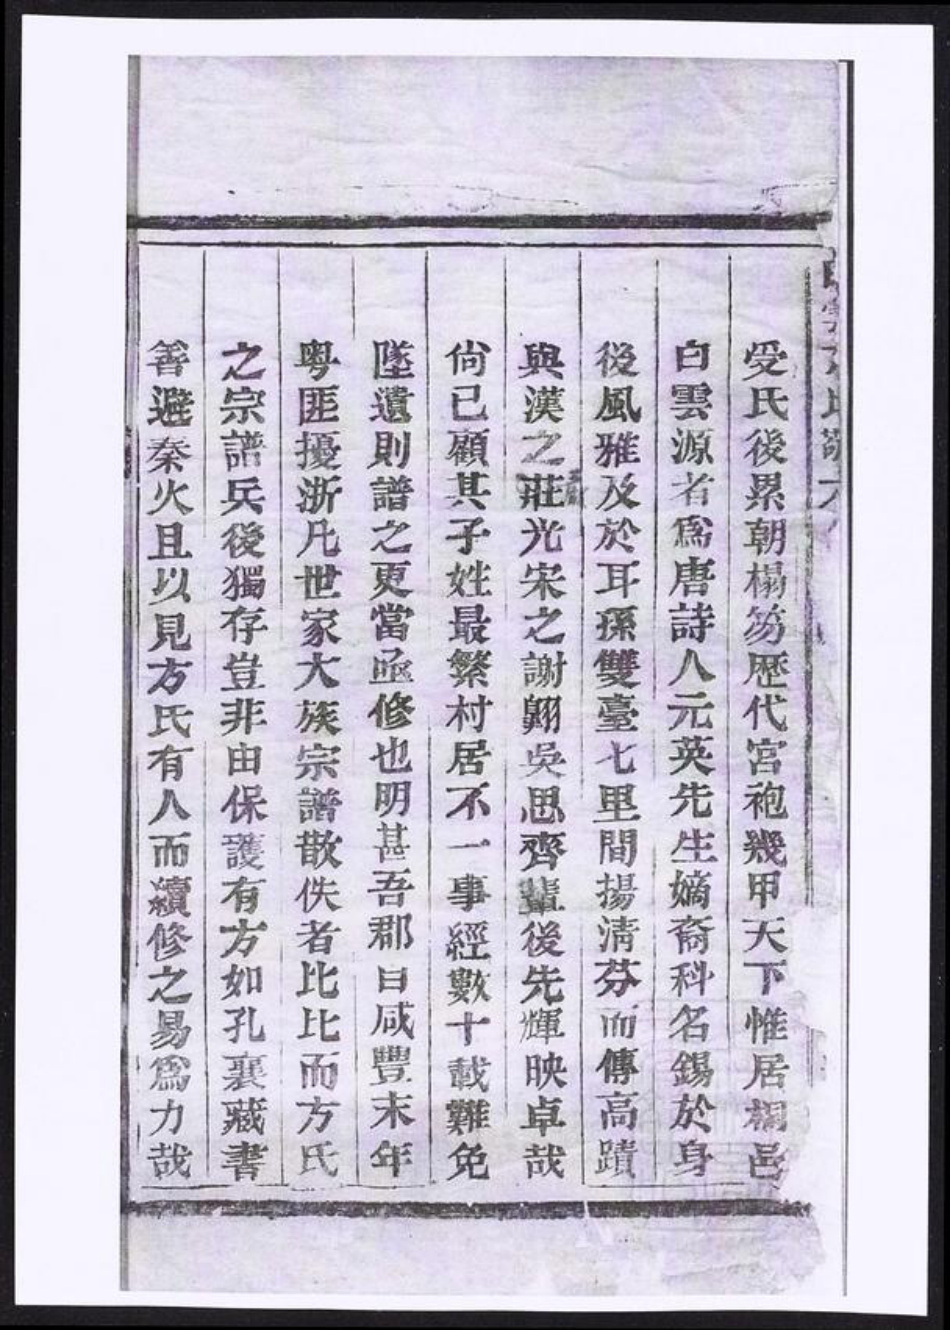 受氏後累朝榻笏歷代宮袍幾甲天下惟居桐邑
白雲源者爲唐詩人元英先生嫡裔科名錫於身
後風雅及於耳孫雙臺七里間揚淸芬而傳高蹟
與漢之莊光宋之謝翺吳思齊輩後先輝映卓哉
尙已顧其子姓最繁村居不一事經數十載難免
墜遺則譜之更當亟修也明甚吾郡自咸豐末年
粤匪擾浙凡世家大族宗譜散佚者比比而方氏
之宗譜兵後獨存豈非由保護有方如孔襄藏書
善避秦火且以見方氏有人而續修之易爲力哉